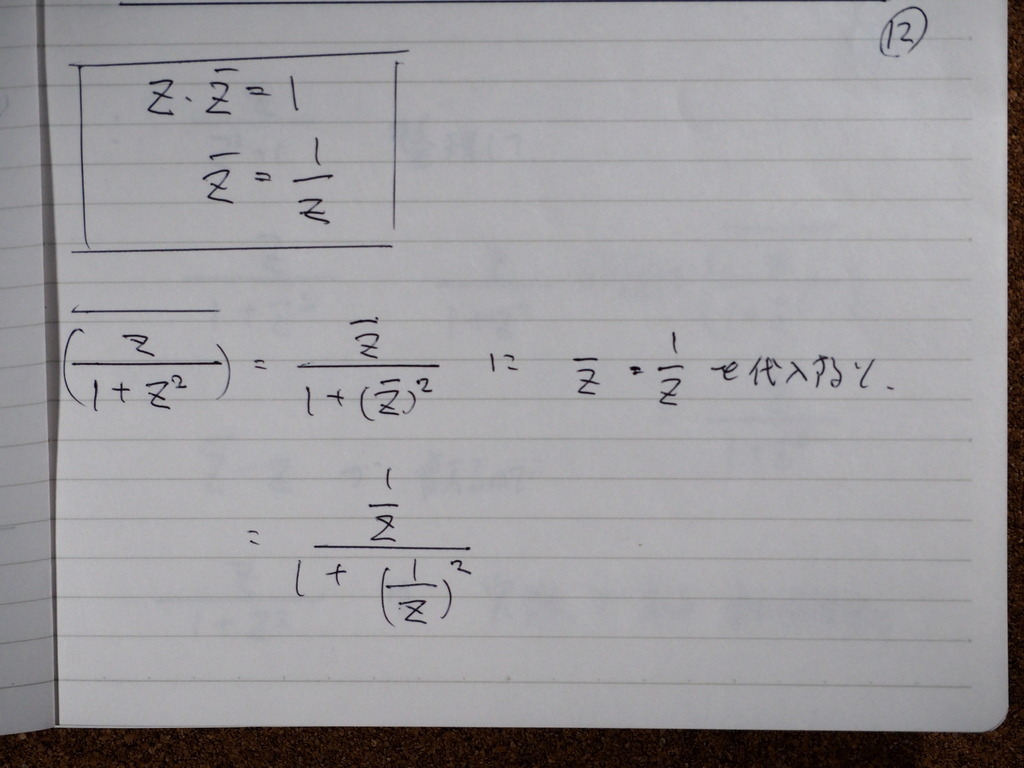 ⑫
z・z̄ = 1
z̄ = 1/z
‾(z/(1+z²)) = z̄/(1+(z̄)²) に z̄ = 1/z を代入すると.
= (1/z)/(1+(1/z)²)